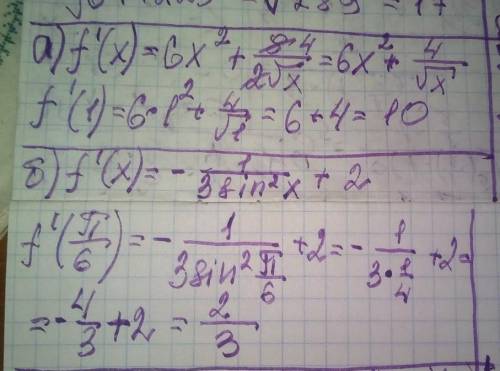 √289 = 17
а) f'(x) = 6x² + 8 4/2√x = 6x² + 4/√x
f'(1) = 6·1² + 4/√1 = 6 + 4 = 10
б) f'(x) = - 1/3sin²x + 2
f'(π/6) = - 1/3sin² π/6 + 2 = - 1/3·1/4 + 2 =
= - 4/3 + 2 = 2/3